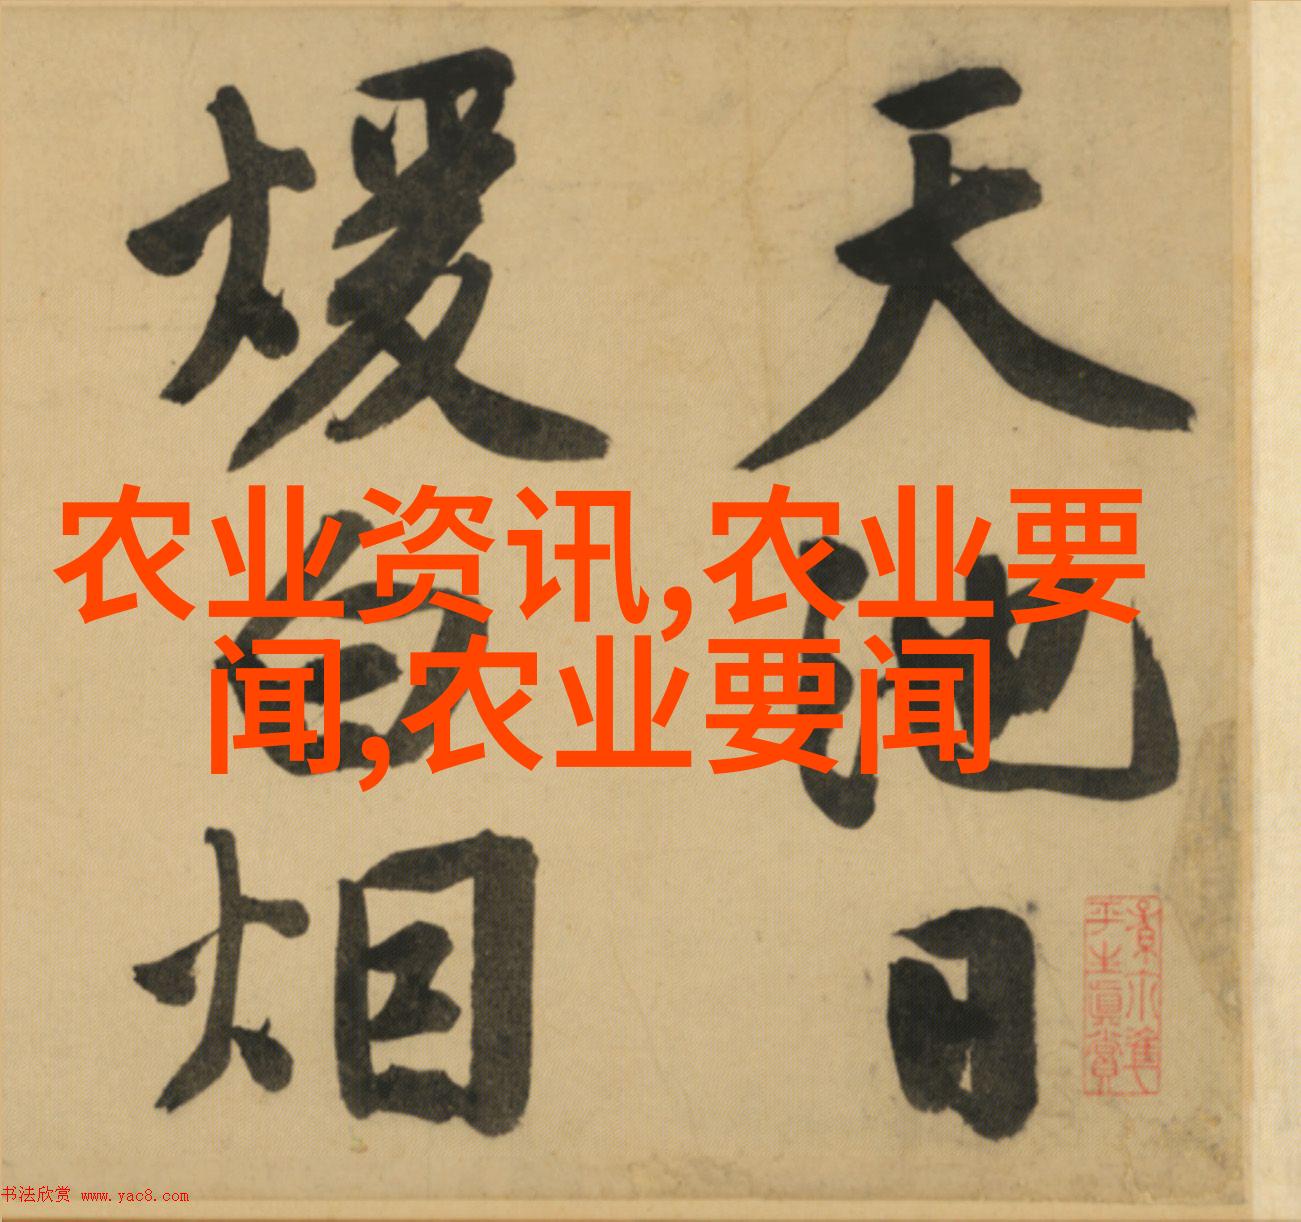 天池日
煖白烟
农业资讯,农业要
闻,农业要闻
书法欣赏 www.yac8.com